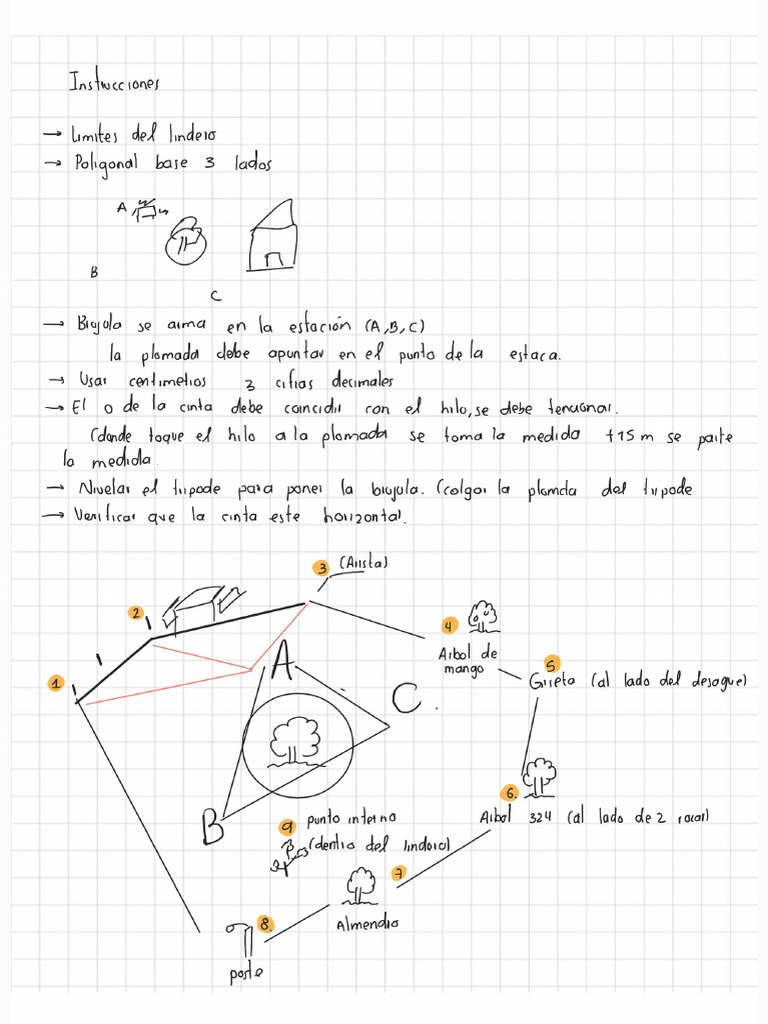 Instrucciones
→ Limites del lindero
→ Poligonal base 3 lados
A
B
C
→ Brujula se arma en la estación (A,B,C)
la plomada debe apuntar en el punto de la estaca.
→ Usar centimetros 3 cifras decimales
→ El 0 de la cinta debe coincidir con el hilo, se debe tencionar.
(donde toque el hilo a la plomada se toma la medida +15 m se parte
la medida.
→ Nivelar el tripode para poner la brujula. (colgar la plomada del tripode
→ Verificar que la cinta este horizontal.
3 (Arista)
2
4
Arbol de
mango
1
A
5
Grieta (al lado del desague)
C.
6.
Arbol 324 (al lado de 2 rocas)
B
9 punto interno
(dentro del lindero)
7
Almendro
8.
poste